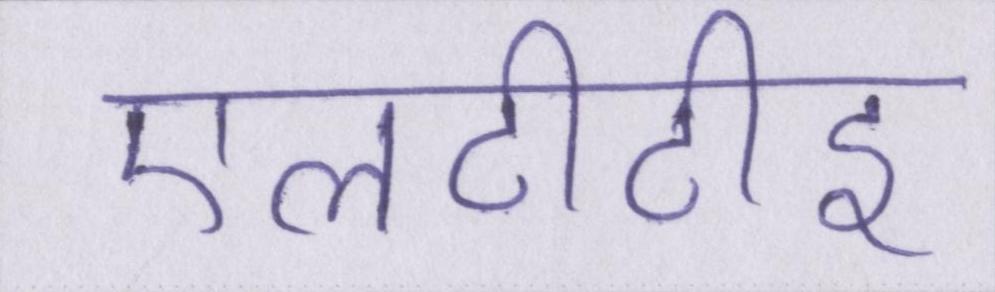 एलटीटीइ